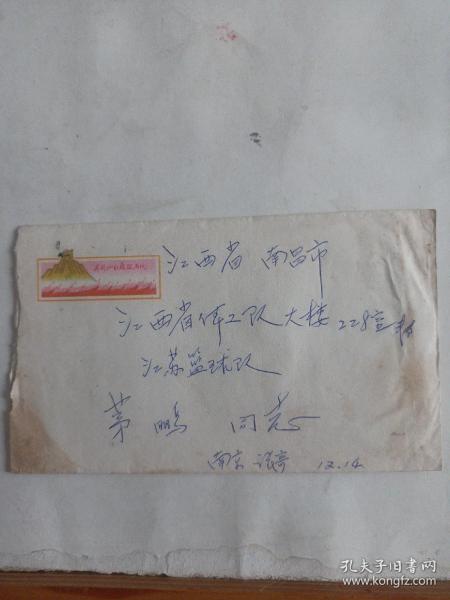 江西省 南昌市
江西省体工队大楼228室
江苏篮球队
茅鹏 同志
南京 12.14
孔夫子旧书网
www.kongfz.com